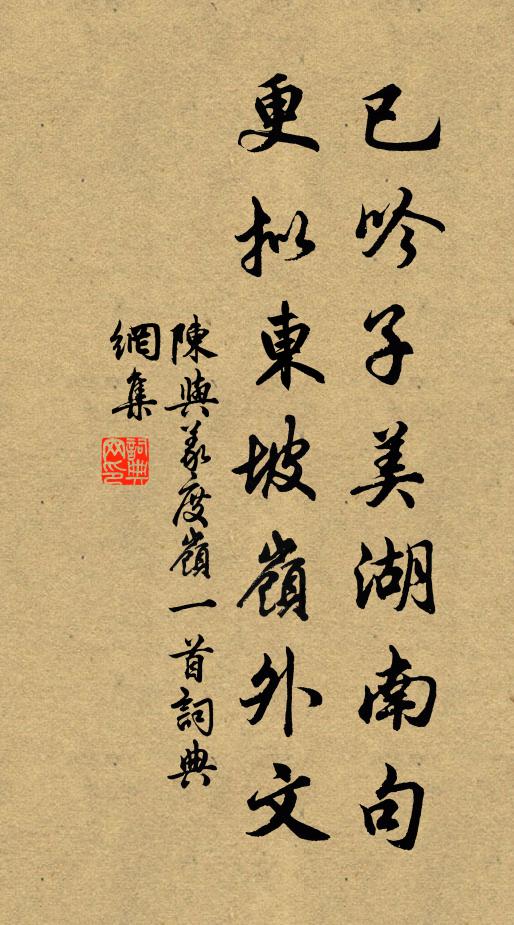 已吟子美湖南句
更拟東坡嶺外文
陳與義度嶺一首詞典
網集
詞典
网印